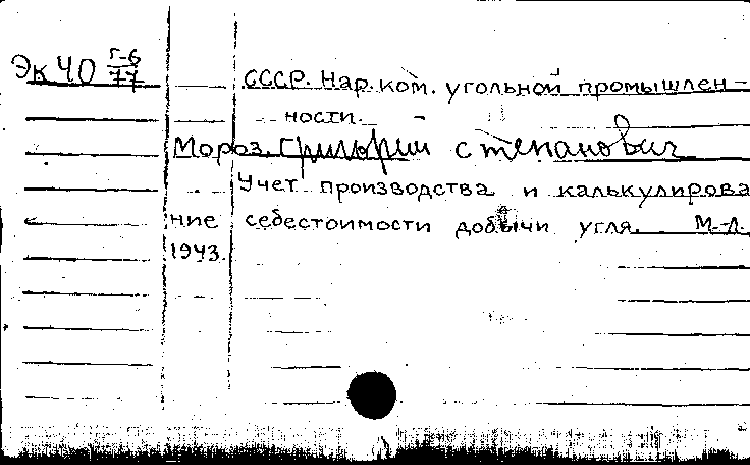 Эк 40 Г-6/77
СССР. Нар. ком. угольной промышлен-
ности.
Мороз, Григорий Степанович
Учет производства и калькулирова
ние себестоимости добычи угля. М.-Л.
1943.